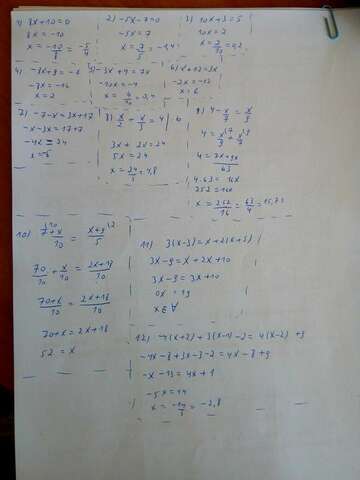 1) 8x+10=0
8x = -10
x = -10/8 = -5/4
2) -5x-7=0
-5x=7
x = 7/5 = -1,4
3) 10x+3=5
10x=2
x = 2/10 = 0,2
x=2
5) -3x+4=7x
-10x=-4
6) x+12=3x
-2x=-12
x=6
7) -7-x=3x+17
-x-3x=17+7
-4x=24
x=-6
8) x/2 + x/3 = 4 | 6
3x+2x=24
5x=24
x = 24/5 = 4,8
9) 4-x/7 = x/9
4·63 = 16x
252=16x
x = 252/16 = 63/4 = 15,75
10) 7+x/10 = x+9/5
70/10 + x/10 = 2x+18/10
70+x/10 = 2x+18/10
70+x=2x+18
52=x
11) 3(x-3)=x+2(x+5)
3x-9=x+2x+10
3x-9=3x+10
0x=19
12) -4(x+2)+3(x-1)-2=4(x-2)+9
-4x-8+3x-3-2=4x-8+9
-x-13=4x+1
-5x=14
x = -14/5 = -2,8